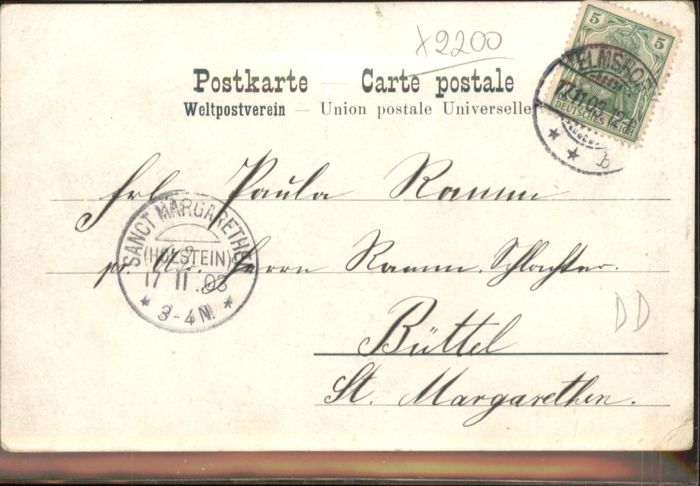 x2200
5 5
DEUTSCHES REICH
ELMSHO
17.11.03.12-
b
Postkarte — Carte postale
Weltpostverein — Union postale Universelle
Frl. Paula Ramm
pr. Adr. Herrn Ramm. Schlachter.
Büttel
St. Margarethen.
SANCT MARGARETHE
(HOLSTEIN)
17 11 .03
3-4 N.
DD